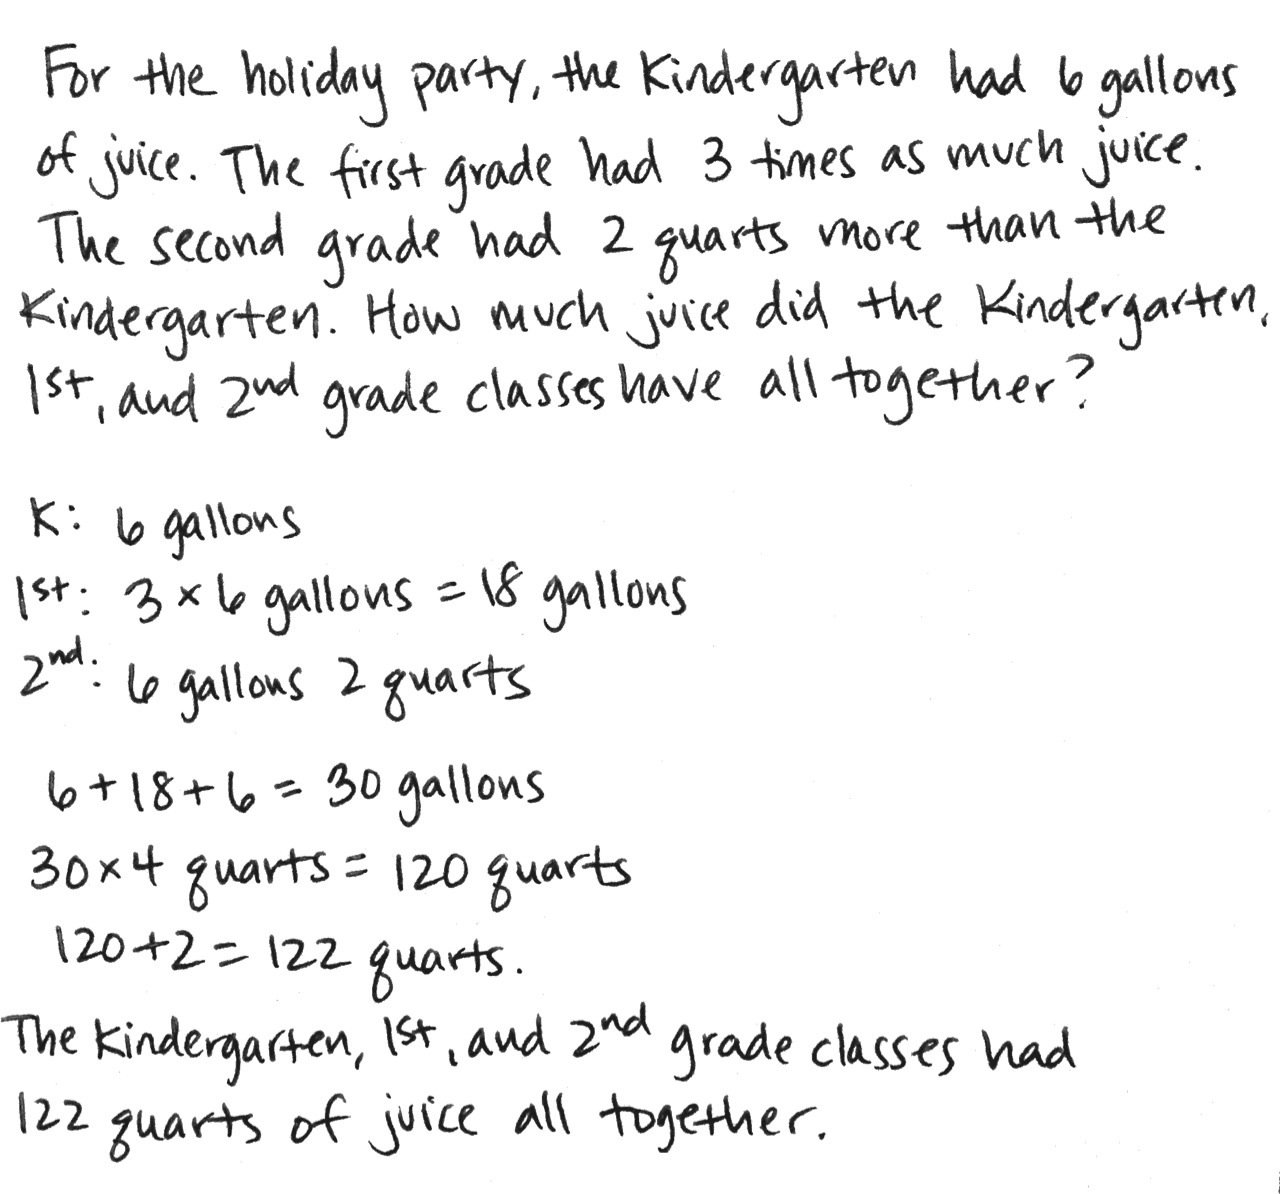 For the holiday party, the Kindergarten had 6 gallons
of juice. The first grade had 3 times as much juice.
The second grade had 2 quarts more than the
Kindergarten. How much juice did the Kindergarten,
1st, and 2nd grade classes have all together?
K: 6 gallons
1st: 3 × 6 gallons = 18 gallons
2nd: 6 gallons 2 quarts
6 + 18 + 6 = 30 gallons
30 × 4 quarts = 120 quarts
120 + 2 = 122 quarts.
The Kindergarten, 1st, and 2nd grade classes had
122 quarts of juice all together.